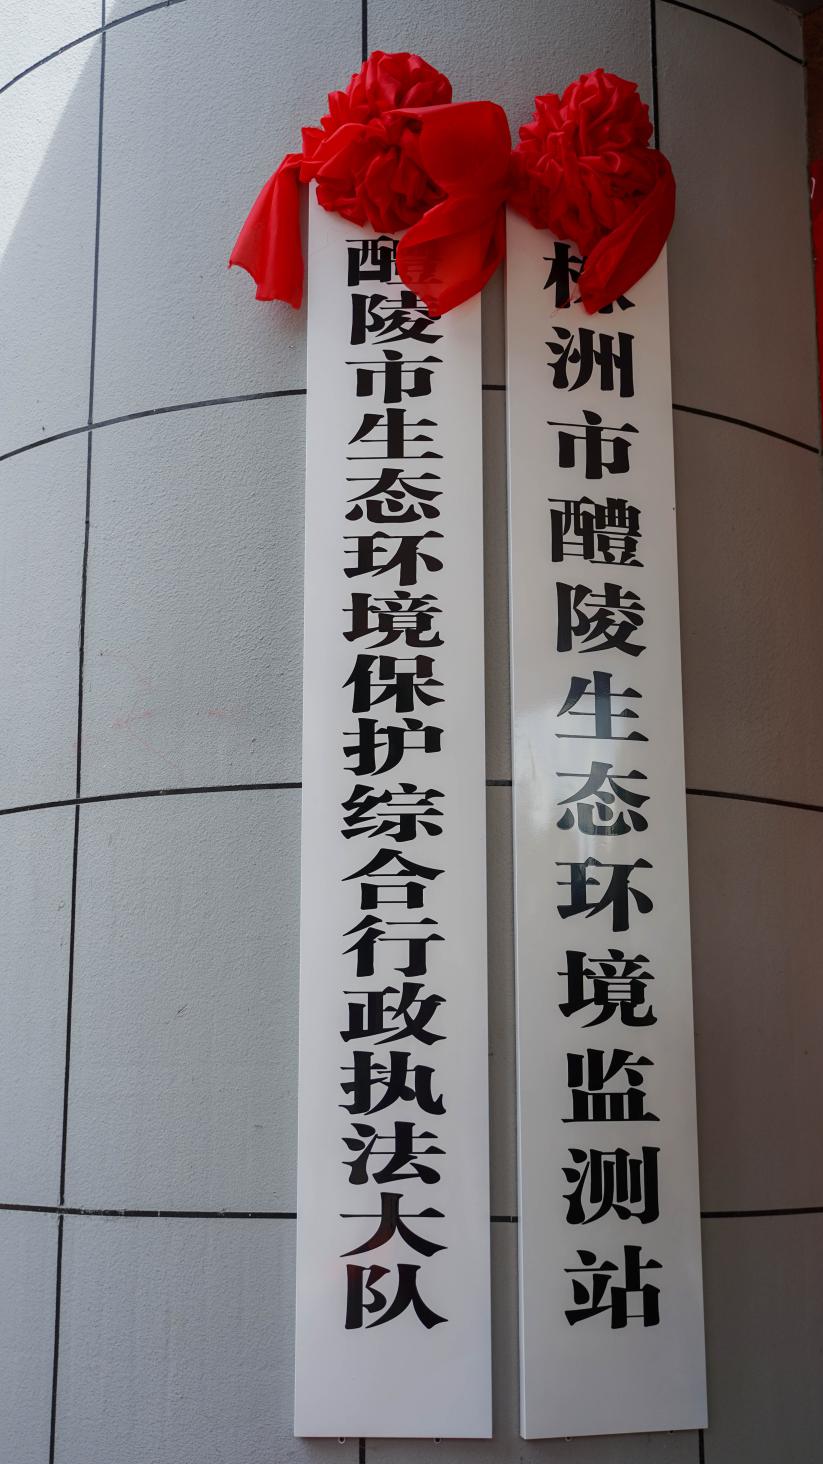 醴陵市生态环境保护综合行政执法大队
株洲市醴陵生态环境监测站